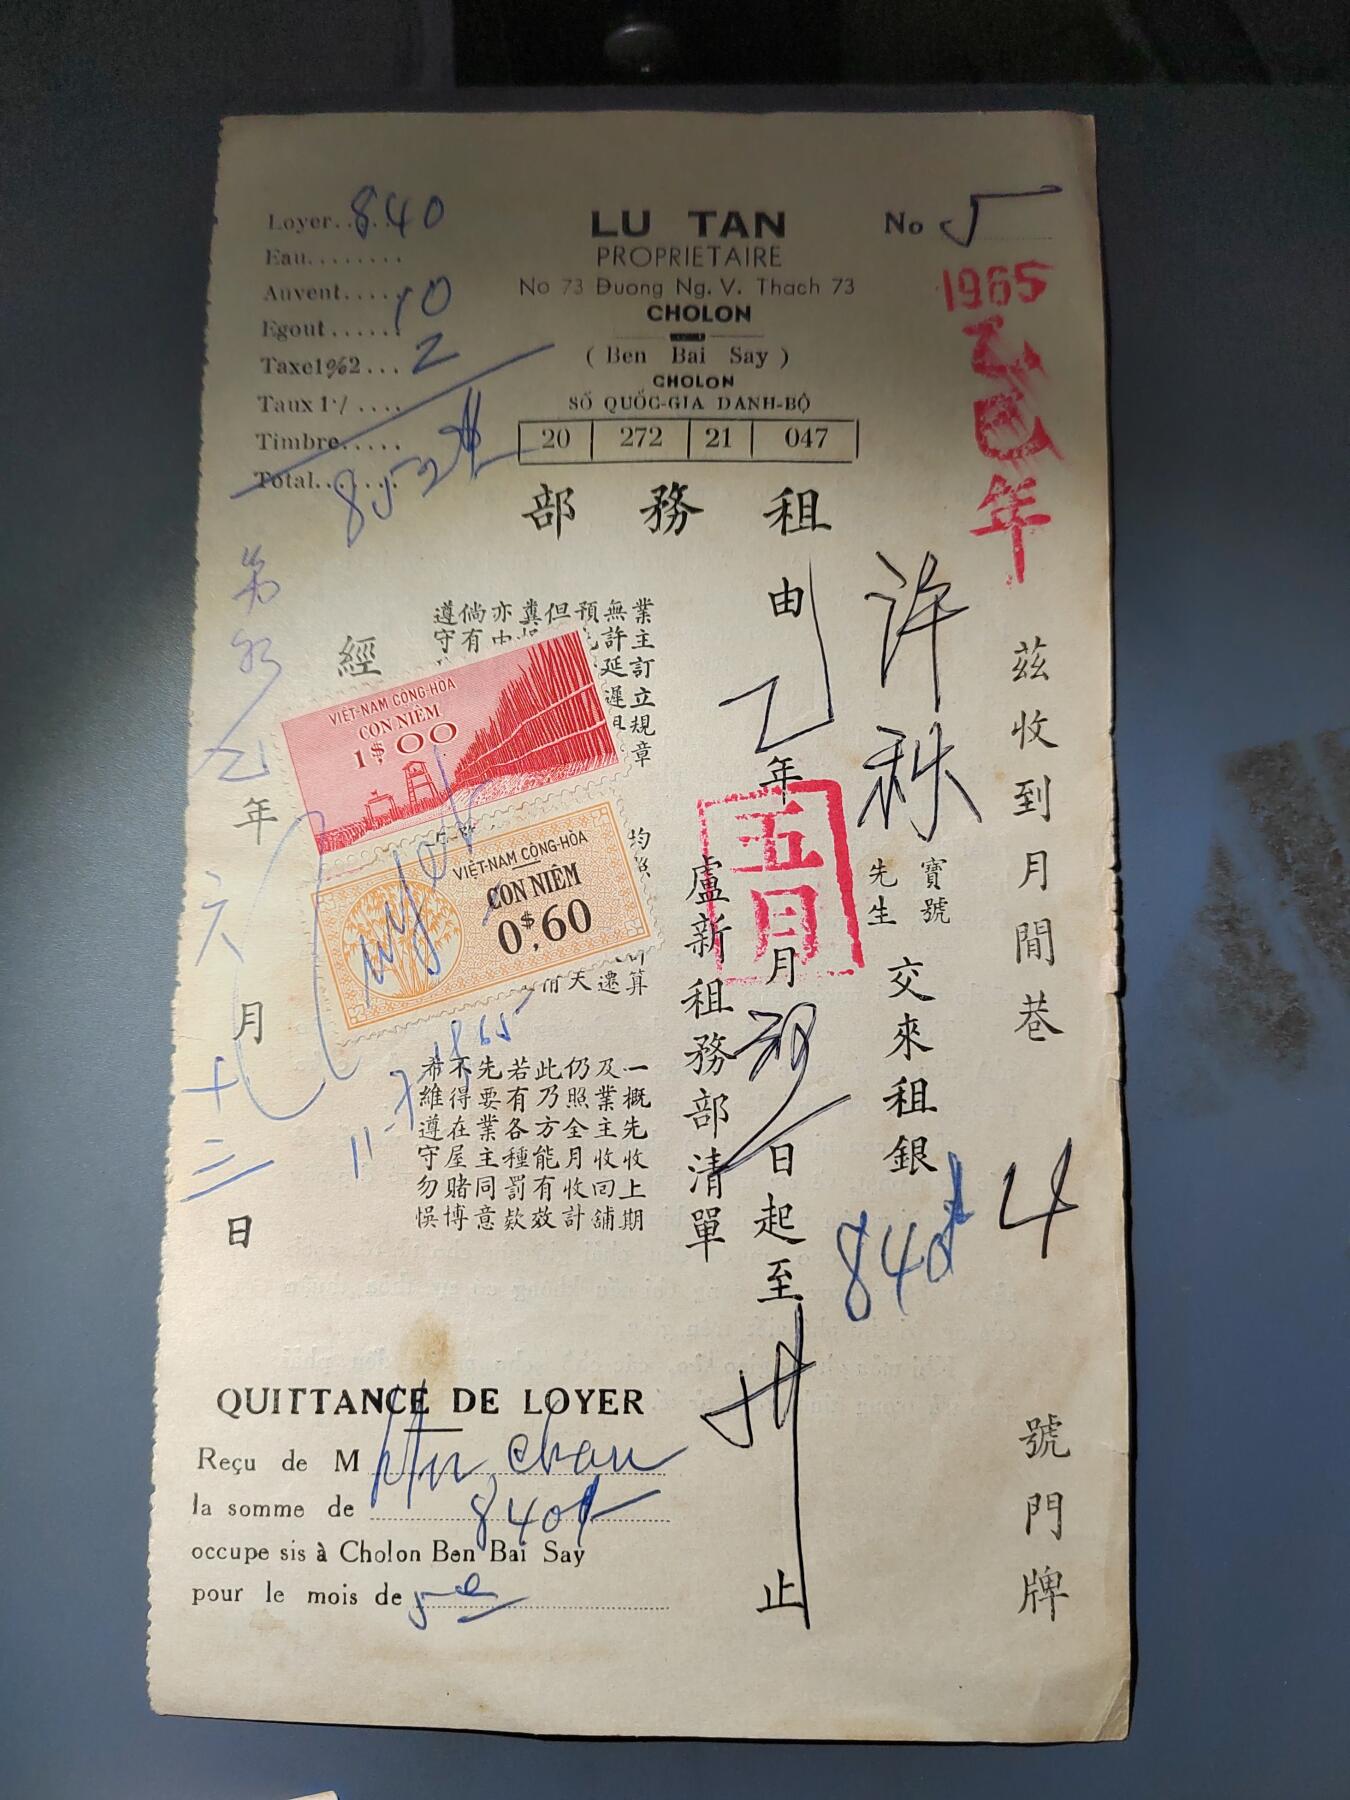 Loyer..... 840
Eau........
Auvent.... 10
Egout......
Taxe1%2... 2
Taux 1·/ ....
Timbre.....
Total....... 852$
LU TAN
PROPRIETAIRE
No 73 Đuong Ng. V. Thach 73
CHOLON
( Ben Bai Say )
CHOLON
SỐ QUỐC-GIA DANH-BỘ
20 272 21 047
No 5
1965
乙巳年
部 務 租
茲收到月間巷 4 號門牌
許秩 寶號 先生 交來租銀 840$
由 乙年 五月 月 初 日起至 卅 止
盧新租務部清單
業主訂立規章
無許延遲
均
算
遷
天
一概先收上期
及業主收回舖
仍照全月收計
此乃方能有效
若有各種罰欵
先要業主同意
不得在屋賭博
希維遵守勿悞
經
VIỆT-NAM CỘNG-HÒA
CON NIÊM
1$00
VIỆT-NAM CỘNG-HÒA
CON NIÊM
0$,60
乙年六月十二日
QUITTANCE DE LOYER
Reçu de M
la somme de 840$
occupe sis à Cholon Ben Bai Say
pour le mois de 5e